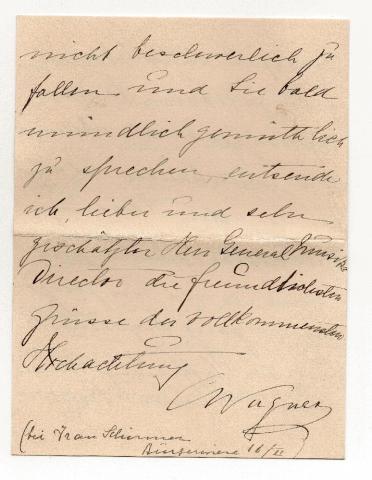 nicht beschwerlich zu
fallen und Sie bald
mündlich gemüthlich
zu sprechen, entsende
ich, lieber und sehr
geschätzter Herr General Musik
Director die freundlichsten
Grüsse der vollkommensten
Hochachtung
CWagner
(bei Frau Schirmer
11/II